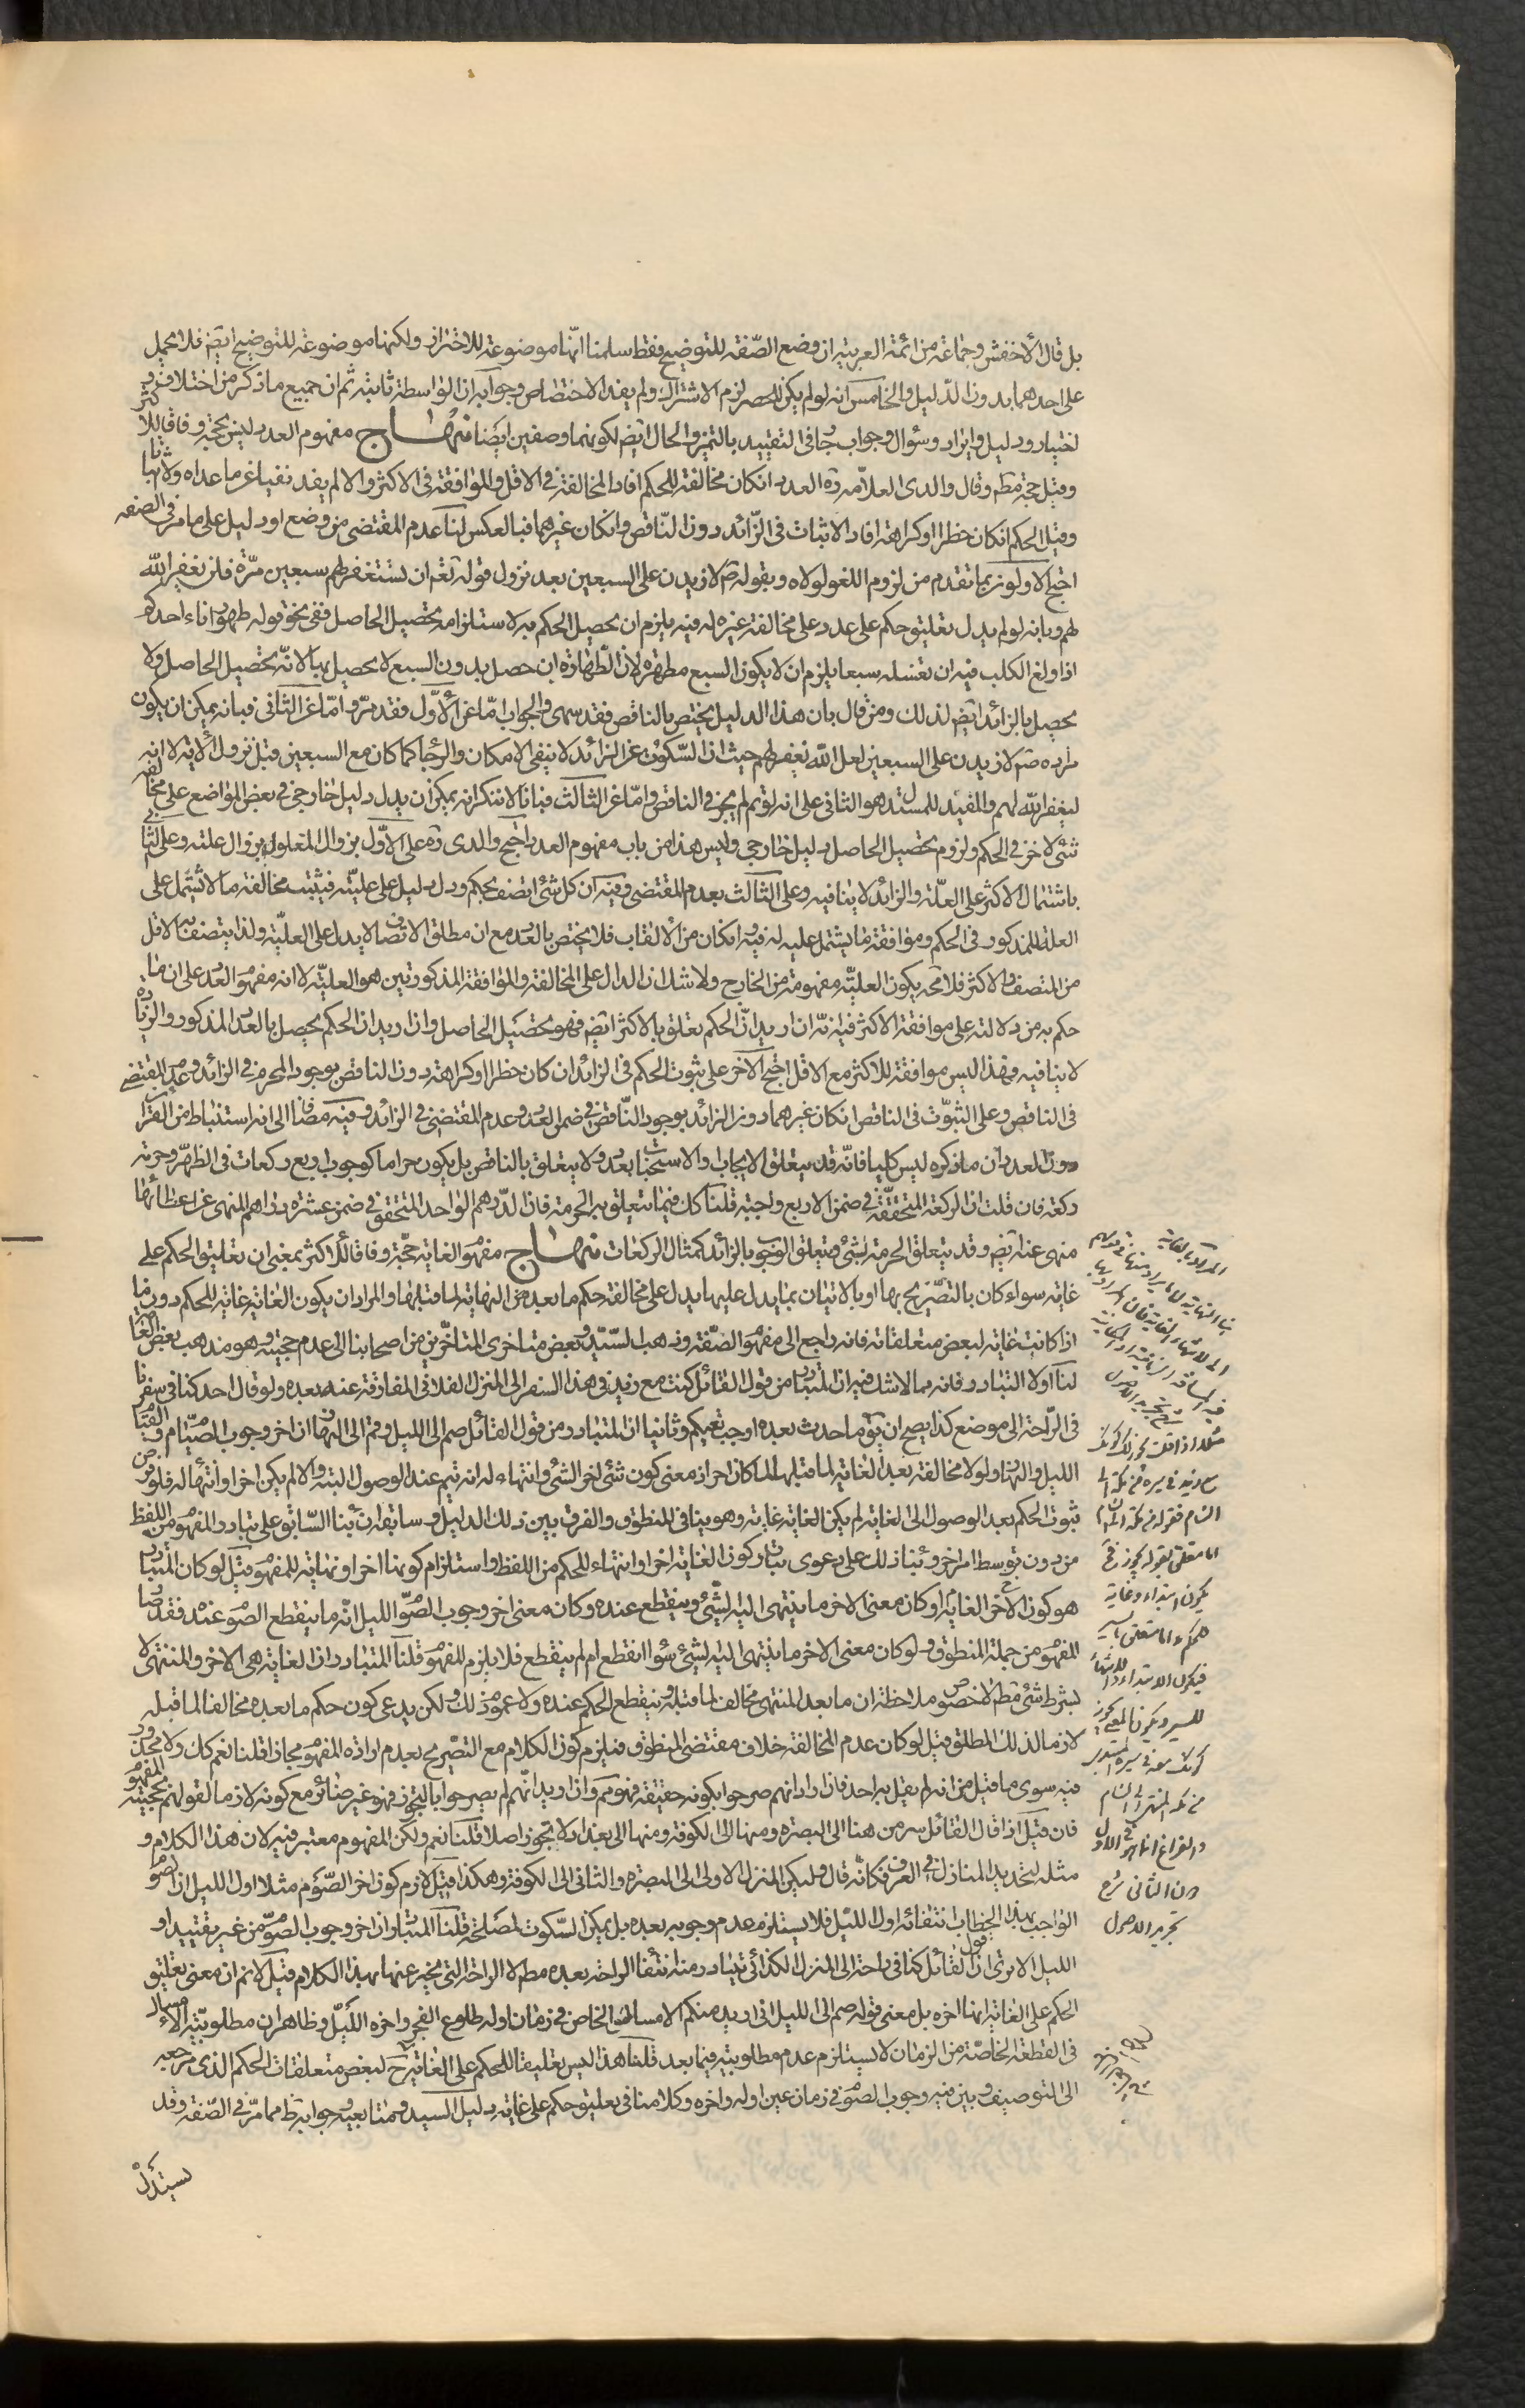 بل قال الأخفش وجماعة من ائمة العربية ان وضع الصّفة للتوضيح فقط سلمنا انّها موضوعة للاحتراز ولكنها موضوعة للتوضيح ايضا فلا يحمل
على احدهما بدون الدّليل والخامس انه لو لم يكن للحصر لزم الاشتراك ولم يفد الاختصاص وجوابه ان الواسطة ثابتة ثم ان جميع ما ذكر من اختلاف
اختيار ودليل وايراد وسؤال وجواب جا فى التقييد بالتميز والحال ايضا لكونهما وصفين ايضا منهاج مفهوم العدد ليس بحجة وفاقا للاكثر
وقيل حجة مطم وقال والدى العلّامة ره العدد انكان مخالفة للحكم افاد المخالفة فى الاقل والموافقة فى الاكثر والا لم يفد نفيا عما عداه ولا اثباتا
وقيل الحكم انكان حظرا او كراهة افاد الاثبات فى الزّائد دون النّاقص وانكان غيرهما فبالعكس لنا عدم المقتضى من وضع او دليل على ما مر فى الصفة
احتج الاولون بما تقدم من لزوم اللغو لولاه وبقوله ص لازيدن على السبعين بعد نزول قوله تعم ان تستغفر لهم سبعين مرّة فلن يغفر الله
لهم وبانه لو لم يدل تعليق حكم على عدد على مخالفة غيره له فيه يلزم ان يحصل الحكم به لاستلزامه تحصيل الحاصل ففى نحو قوله طهور اناء احدكم
اذا ولغ الكلب فيه ان تغسله سبعا يلزم ان لا يكون السبع مطهرة لان الطّهارة ان حصل بدون السبع لا يحصل بها لانّه تحصيل الحاصل ولا
يحصل بالزائد ايضا لذلك ومن قال بان هذا الدليل يختص بالناقص فقد سهى والجواب امّا عن الأوّل فقد مرّ وامّا عن الثانى فبانه يمكن ان يكون
مراده ص لازيدن على السبعين لعل الله يغفر لهم حيث ان السّكوت عن الزائد لا ينفى الامكان والرّجا كما كان مع السبعين قبل نزول الآية لا انه
ليغفر الله لهم والمفيد للمستدل هو الثانى على انه لو تم لم يجز فى الناقص وامّا عن الثالث فبانا لا ننكر انه يمكن ان يدل دليل خارجى فى بعض المواضع على مخالفة
شئ لاخر فى الحكم ولزوم تحصيل الحاصل دليل خارجى وليس هذا من باب مفهوم العدد احتج والدى ره على الاوّل بزوال المعلول بزوال علته وعلى الثانى
باشتمال الاكثر على العلّة والزائد لا ينافيه وعلى الثالث بعدم المقتضى وفيه ان كل شئ اتصف بحكم ودل دليل على عليّته فيثبت مخالفة ما لا يشتمل على
العلة للمذكور فى الحكم وموافقة ما يشتمل عليه له فيه وانكان من الألقاب فلا يختص بالعدد مع ان مطلق الاتصاف لا يدل على العليّة ولذا يتصف الاقل
من المتصف والاكثر فلا محه يكون العليّة مفهومة من الخارج ولا شك ان الدال على المخالفة والموافقة المذكورتين هو العليّة لا انه مفهوم العدد على ان ما
حكم به من دلالته على موافقة الاكثر فيه انّه ان اريد انّ الحكم تعلق بالاكثر ايضا فهو تحصيل الحاصل وان اريد ان الحكم يحصل بالعدد المذكور والزيادة
لا ينافيه فهذا ليس موافقة للاكثر مع الاقل احتج الآخر على ثبوت الحكم فى الزائد ان كان حظرا او كراهة دون الناقص بوجود المحرم فى الزائد وعدم المقتضى
فى الناقص وعلى الثبوت فى الناقص انكان غيرهما دون الزائد بوجود النّاقص فى ضمن العدد وعدم المقتضى فى الزائد وفيه مضافا الى انه استنباط من القرائن
دون العدد ان ما ذكره ليس كليا فانّه قد يتعلق الايجاب والاستحباب بعدد ولا يتعلق بالناقص بل يكون حراما كوجوب اربع ركعات فى الظهر وحرمة
ركعة فان قلت ان الركعة المتحققة فى ضمن الاربع واجبة قلنا كك فيما يتعلق به الحرمة فان الدّرهم الواحد المتحقق فى ضمن عشرة دراهم المنهى عن اعطائها
منهى عنه ايضا وقد يتعلق الحرمة لشئ ويتعلق الوجوب بالزائد كمثال الركعات منهاج مفهوم الغاية حجّة وفاقا للأكثر بمعنى ان تعليق الحكم على
غاية سواء كان بالتصّريح بها او بالاتيان بما يدل عليها يدل على مخالفة حكم ما بعد من النهاية لما قبلها والمراد ان يكون الغاية غاية للحكم دون ما
اذا كانت غاية لبعض متعلقاته فانه راجع الى مفهوم الصّفة وذهب السّيّد وبعض متاخرى المتاخّرين من اصحابنا الى عدم حجيته وهو مذهب بعض العامة
لنا اولا التبادر فانه مما لا شك فيه ان المتبادر من قول القائل كنت مع زيد فى هذا السفر الى المنزل الفلانى المفارقة عنه بعده ولو قال احد كنا فى سفرنا
فى الرّاحة الى موضع كذا يصح ان يقو ما حدث بعده اوجب تعبكم وثانيا ان المتبادر من قول القائل صم الى الليل وقم الى النهار ان اخر وجوب الصيّام والقيام
الليل والنهار ولولا مخالفة بعد الغاية لما قبلها لما كان اخرا ذ معنى كون شئ اخر الشئ وانتهاء له انه يتم عند الوصول البتة والا لم يكن اخرا وانتهاء له فلو فرض
ثبوت الحكم بعد الوصول الى الغاية لم يكن الغاية غاية وهو ينافى المنطوق والفرق بين ذلك الدليل وسابقه ان بنا السّابق على تبادر المفهوم من اللفظ
من دون توسط امر اخر وبناء ذلك على دعوى تبادر كون الغاية اخرا وانتهاء للحكم من اللفظ واستلزام كونها اخرا ونهاية للمفهوم قيل لو كان المتبادر
هو كون الاخر الغاية وكان معنى الاخر ما ينتهى اليه الشّئ وينقطع عنده وكان معنى اخر وجوب الصّوم الليل انّه ما ينقطع الصوم عنده فقد صار
المفهوم من جملة المنطوق ولو كان معنى الاخر ما ينتهى اليه الشئ سواء انقطع ام لم ينقطع فلا يلزم المفهوم قلنا المتبادر ان الغاية هى الاخر والمنتهى لا
بشرط شئ مطم لا خصوص ملاحظة ان ما بعد المنتهى مخالف لما قبله وينقطع الحكم عنده ولا عموم ذلك ولكن يدعى كون حكم ما بعده مخالفا لما قبله
لازما لذلك المطلق قيل لو كان عدم المخالفة خلاف مقتضى المنطوق فيلزم كون الكلام مع التصّريح بعدم ارادة المفهوم مجازا قلنا نعم كك ولا محذور
فيه سوى ما قيل من انه لم يقل به احد فان اراد انهم صرحوا بكونه حقيقة فهو مم وان اريد انّهم لم يصرحوا بالتجوز فهو غير ضائر مع كونه لازما لقولهم بحجية المفهوم
فان قيل اذا قال القائل سر من هنا الى البصرة ومنها الى الكوفة ومنها الى بغداد لا تجوز اصلا قلنا نعم ولكن المفهوم معتبر فيه لان هذا الكلام و
مثله لتحديد المنازل فى العرف فكانّه قال وليكن المنزل الاولى الى البصرة والثانى الى الكوفة وهكذا قيل لازم كون اخر الصّوم مثلا اول الليل ان الصوم
الواجب بهذا الخطاب انتفائه اول اللّيل فلا يستلزم عدم وجوبه بعده بل يمكن السّكوت لمصلحة قلنا المتبادر ان اخر وجوب الصّوم من غير تقييد او
الليل الا ترى ان قول القائل كنا فى راحة الى المنزل الكذائى يتبادر منه انتفاء الراحة بعده مطم لا الراحة التى يخبر عنها بهذا الكلام قيل لا نم ان معنى تعليق
الحكم على الغاية انها اخره بل معنى قوله صم الى الليل انى اريد منكم الامساك الخاص فى زمان اوله طلوع الفجر واخره اللّيل وظاهر ان مطلوبيّة الامساك
فى القطعة الخاصّة من الزمان لا يستلزم عدم مطلوبيته فيما بعد قلنا هذا ليس تعليقا للحكم على الغاية بل لبعض متعلقات الحكم الذى مرجعه
الى التوصيف وبين فيه وجوب الصوم فى زمان عين اوله واخره وكلامنا فى تعليق حكم على غاية دليل السيد ومتابعيه وجوابه ظ مما مرّ فى الصّفة وقد
يستدل
المراد بالغاية
هنا النهاية
مثلا اذا قلت يجوز لك كونك
مع زيد فى سيره من مكة الى
الشام فقوله من مكة الى الشام
اما متعلق بقوله يجوز
يكون ابتداء وغاية
للحكم واما متعلق بالسير
فيكون الابتداء والانتهاء
للسير ويكون المعنى يجوز
كونك معه فى سيره
من مكة المنتهى الى الشام
والنزاع انما هو فى الاول
دون الثانى شرح
تجريد الاصول